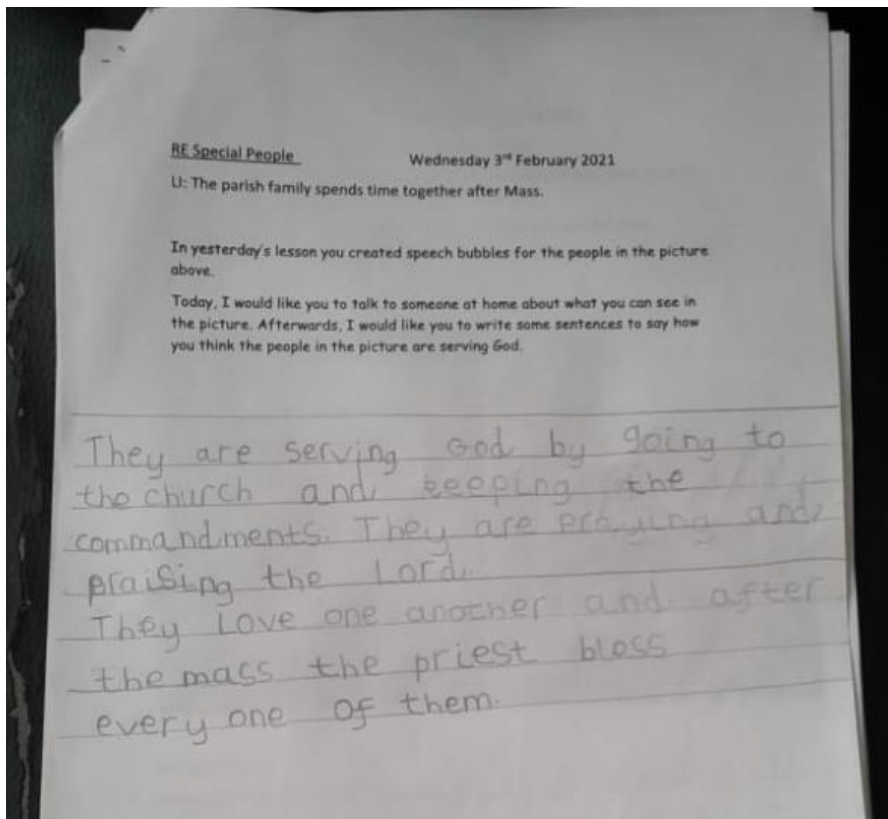 RE Special People Wednesday 3rd February 2021
LI: The parish family spends time together after Mass.
In yesterday's lesson you created speech bubbles for the people in the picture
above.
Today, I would like you to talk to someone at home about what you can see in
the picture. Afterwards, I would like you to write some sentences to say how
you think the people in the picture are serving God.
They are serving God by going to
the church and keeping the
commandments. They are praying and
praising the Lord.
They Love one another and after
the mass the priest bless
every one of them.